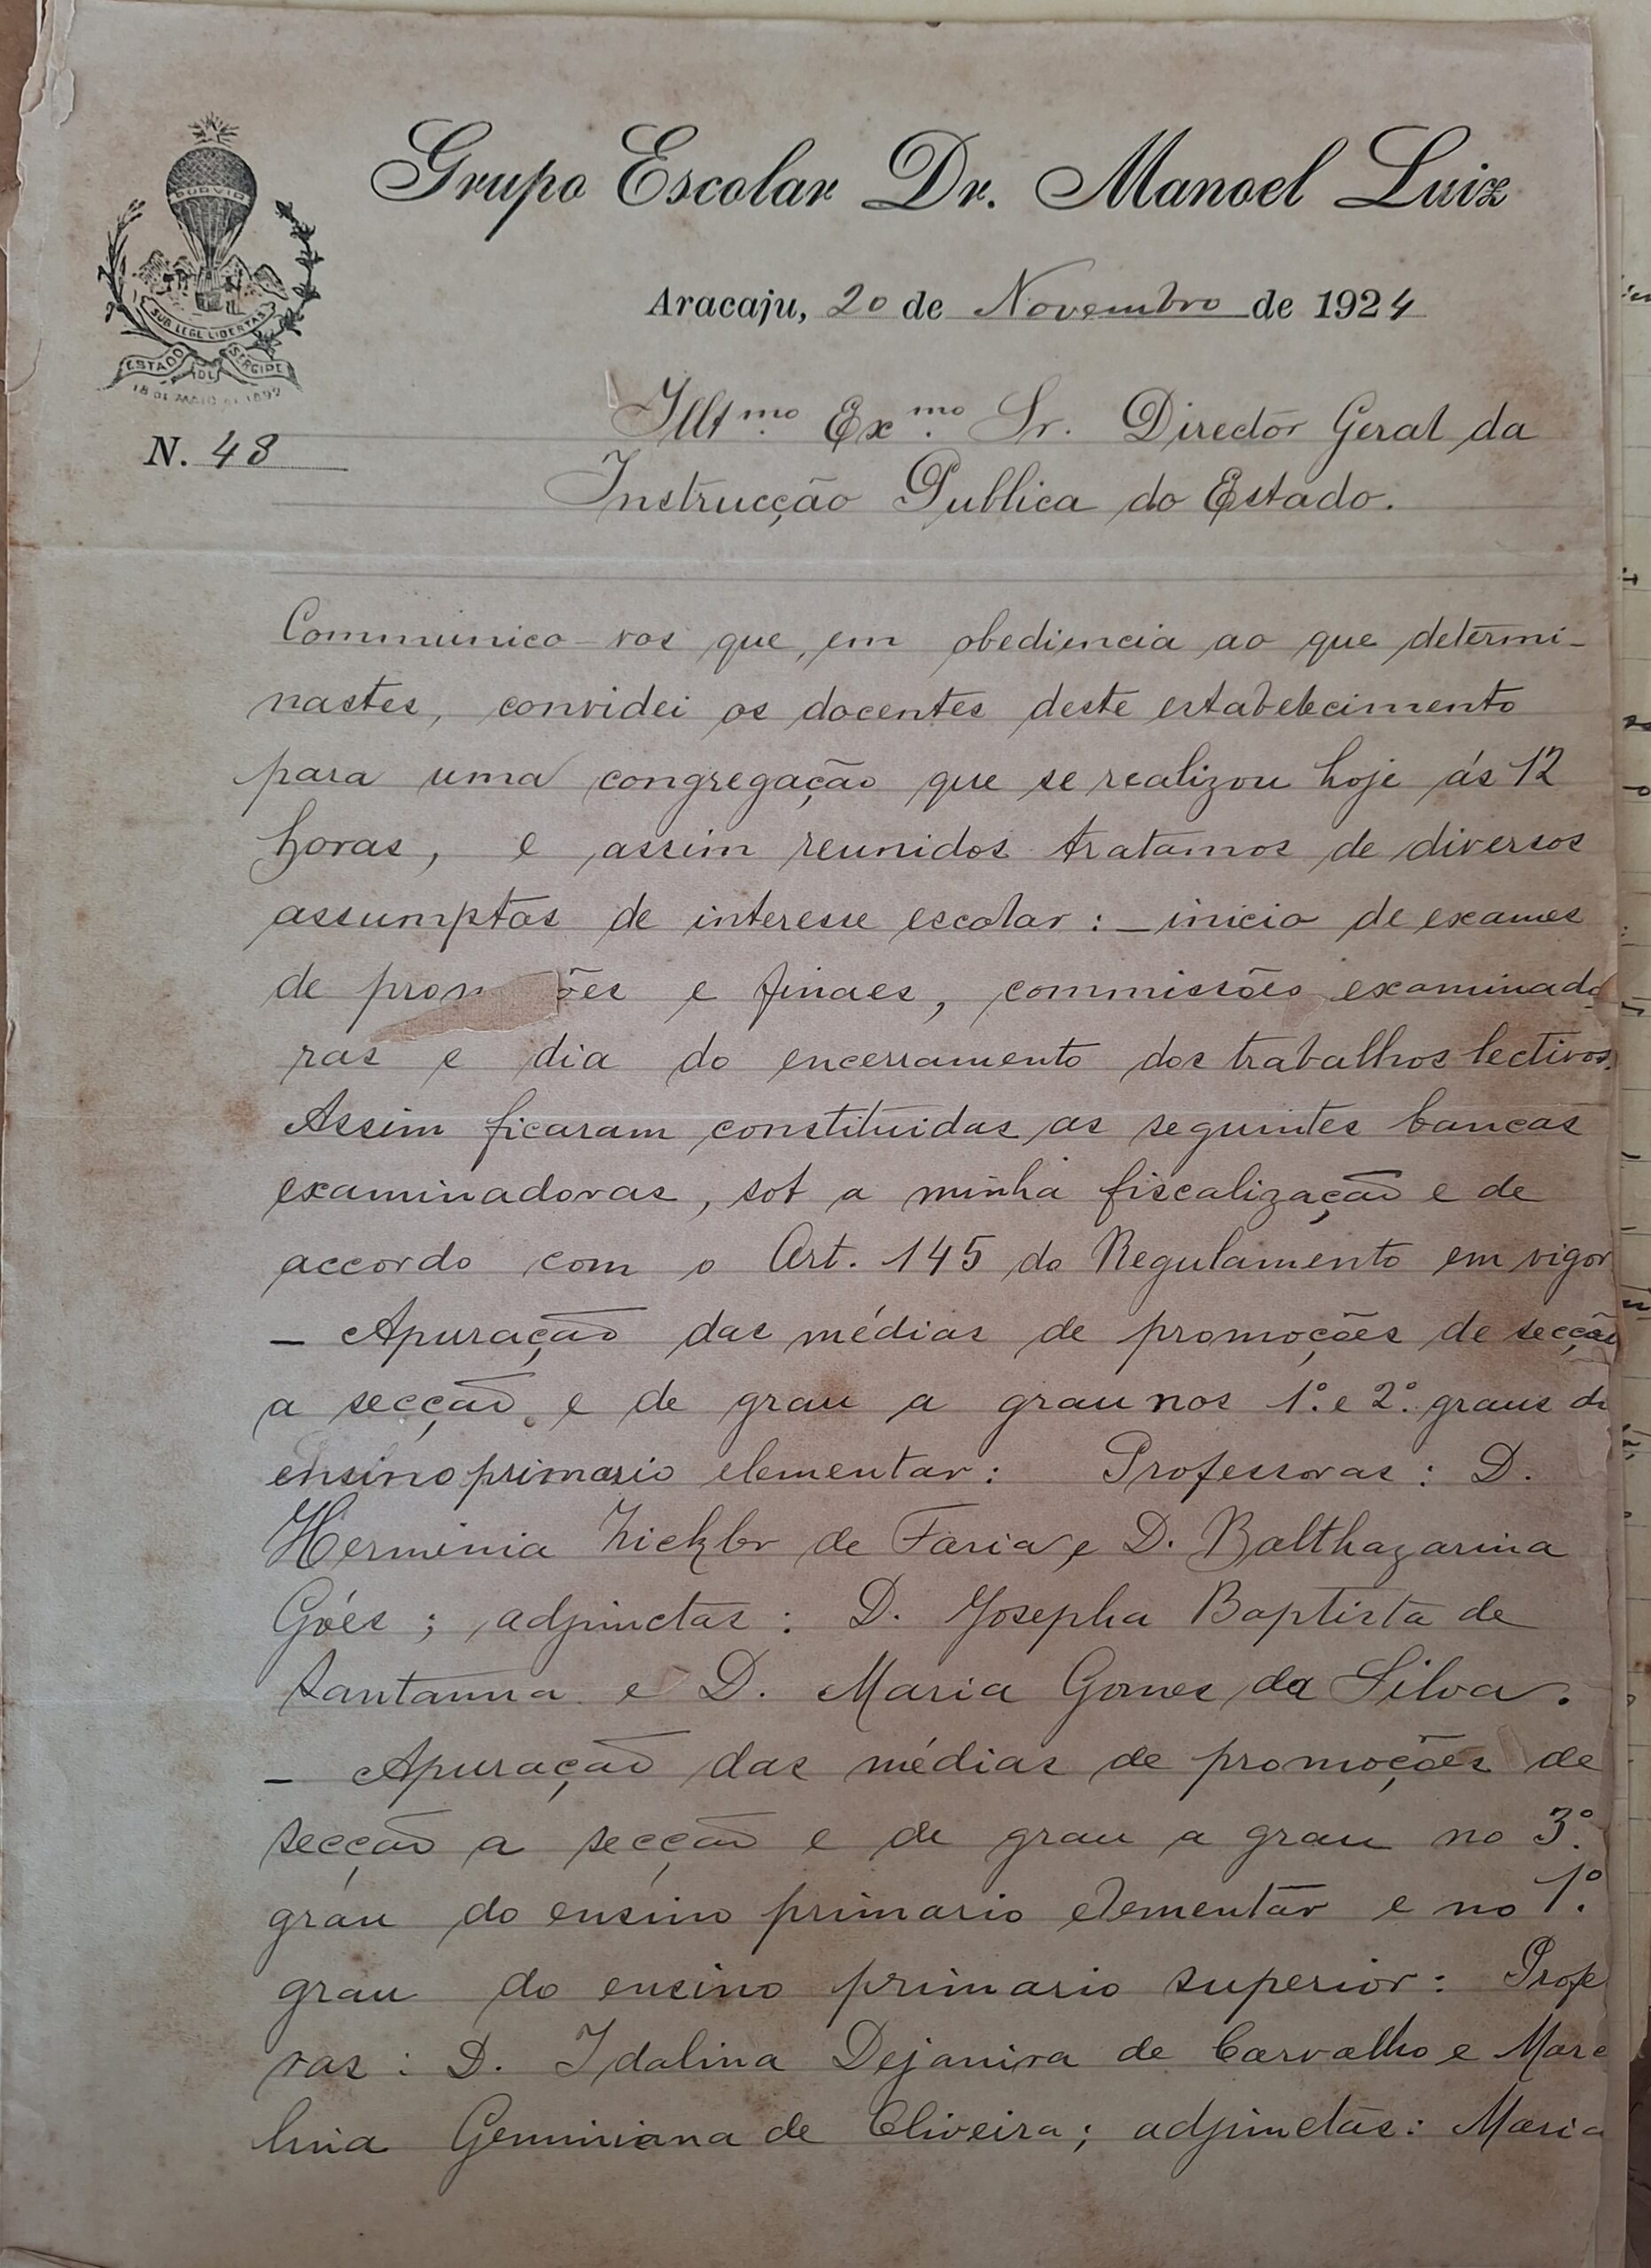 PORVIR
SUB LEGE LIBERTAS
ESTADO DE SERGIPE
18 DE MAIO DE 1892
Grupo Escolar Dr. Manoel Luiz
Aracaju, 20 de Novembro de 1924
N. 48
Illt.mo Ex.mo Sr. Director Geral da
Instrucção Publica do Estado.
Communico-vos que, em obediencia ao que determi-
nastes, convidei os docentes deste estabelecimento
para uma congregação que se realizou hoje ás 12
horas, e assim reunidos tratamos de diversos
assumptos de interesse escolar: — inicio de exames
de prom ões e finaes, commissões examinado
ras e dia do encerramento dos trabalhos lectivos.
Assim ficaram constituidas as seguintes bancas
examinadoras, sob a minha fiscalização e de
accordo com o Art. 145 do Regulamento em vigor
— Apuração das médias de promoções de secção
a secção e de grau a grau nos 1.º e 2.º graus do
ensino primario elementar: Professoras: D.
Herminia de Faria e D. Balthazarina
Góes; adjunctas: D. Josepha Baptista de
Santanna e D. Maria Gomes da Silva.
— Apuração das médias de promoções de
secção a secção e de grau a grau no 3.º
grau do ensino primario elementar e no 1.º
grau do ensino primario superior: Profe
ras: D. Idalina Dejanira de Carvalho e Marc
lina Geminiana de Oliveira; adjunctas: Maria